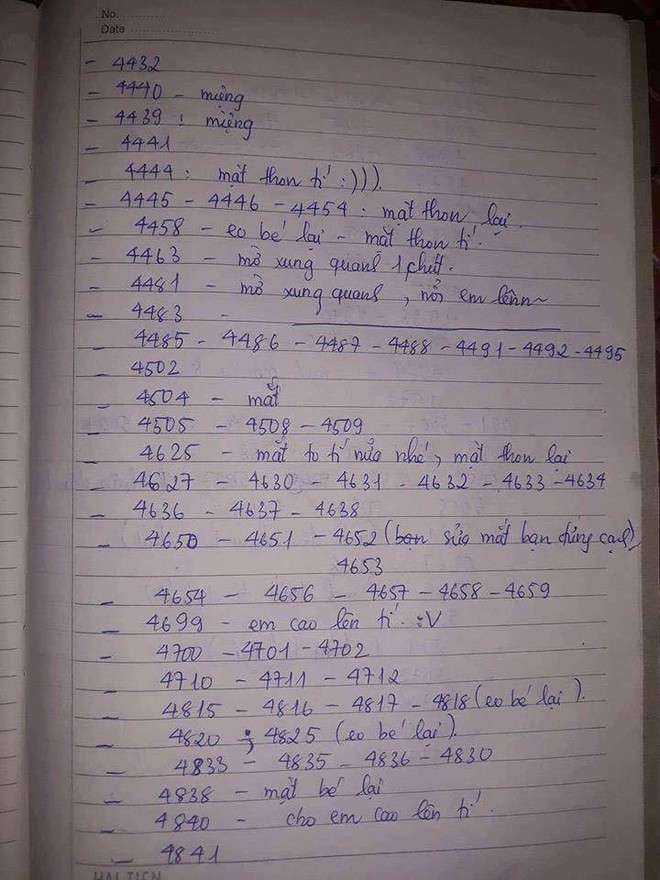 No.
Date
- 4432
- 4440 - miệng
- 4439 : miệng
- 4441
- 4444 : mặt thon tí :))).
- 4445 - 4446 - 4454 : mặt thon lại.
- 4458 - eo bé lại - mặt thon tí.
- 4463 - mờ xung quanh 1 chút.
- 4481 - mờ xung quanh, nổi em lênn~
- 4483 -
- 4485 - 4486 - 4487 - 4488 - 4491 - 4492 - 4495
- 4502
- 4504 - mắt
- 4505 - 4508 - 4509
- 4625 - mắt to tí nữa nhé, mặt thon lại
- 4627 - 4630 - 4631 - 4632 - 4633 - 4634
- 4636 - 4637 - 4638
- 4650 - 4651 - 4652 (bạn sửa mắt bạn đứng cạnh)
4653
- 4654 - 4656 - 4657 - 4658 - 4659
- 4699 - em cao lên tí. :V
- 4700 - 4701 - 4702
- 4710 - 4711 - 4712
- 4815 - 4816 - 4817 - 4818 (eo bé lại).
- 4820 ; 4825 (eo bé lại).
- 4833 - 4835 - 4836 - 4830
- 4838 - mặt bé lại
- 4840 - cho em cao lên tí.
- 4841
HẢI TIẾN